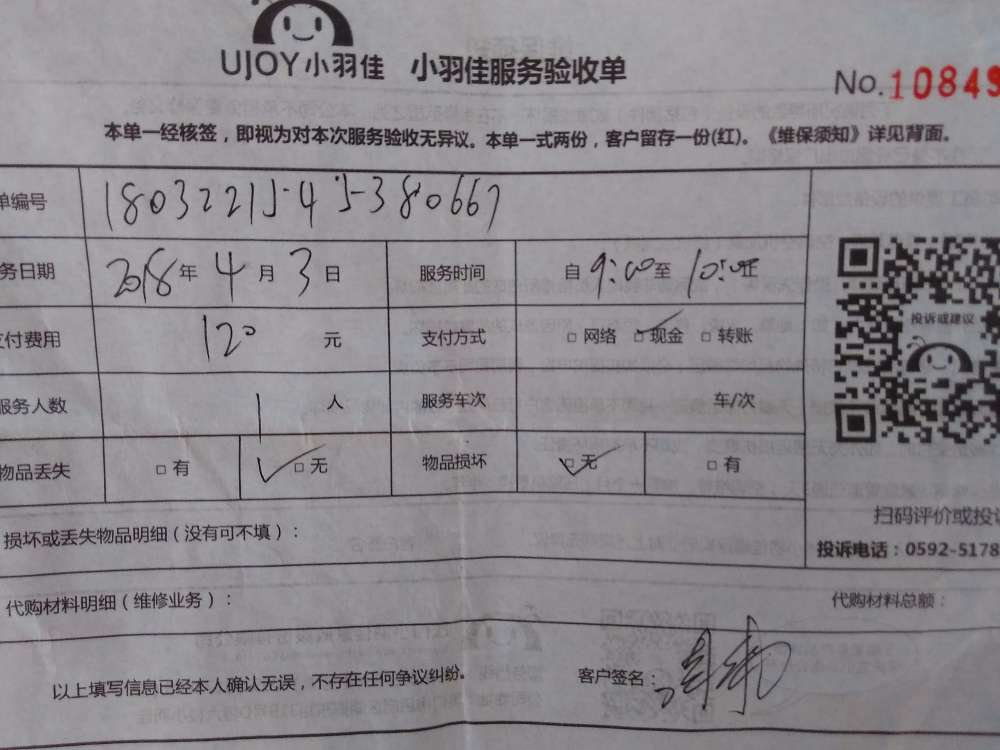 UJOY小羽佳 小羽佳服务验收单
No.10849
本单一经核签，即视为对本次服务验收无异议。本单一式两份，客户留存一份(红)。《维保须知》详见背面。
单编号 18032215-45-380667
务日期 2018年 4月 3日 服务时间 自 9:00至 10:00
支付费用 120 元 支付方式 □ 网络 □ 现金 □ 转账
服务人数 1 人 服务车次 车/次
物品丢失 □ 有 □ 无 物品损坏 □ 无 □ 有
投诉或建议
扫码评价或投诉
投诉电话：0592-5178
损坏或丢失物品明细（没有可不填）：
代购材料明细（维修业务）： 代购材料总额：
以上填写信息已经本人确认无误，不存在任何争议纠纷。 客户签名：